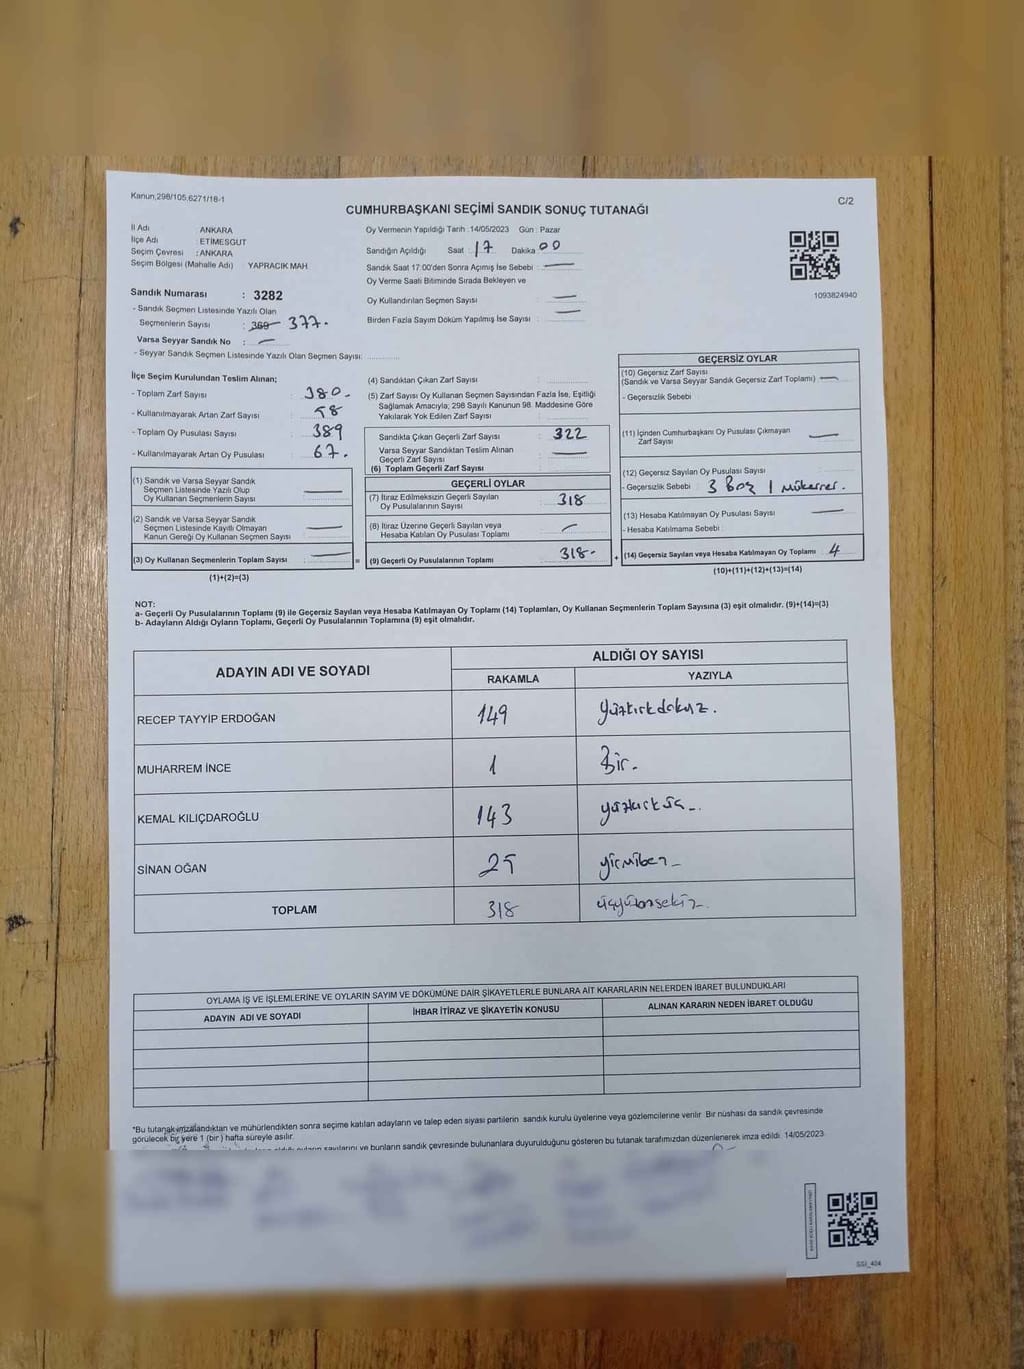 Kanun,298/105,6271/18-1
C/2
CUMHURBAŞKANI SEÇİMİ SANDIK SONUÇ TUTANAĞI
İl Adı ANKARA
İlçe Adı ETIMESGUT
Seçim Çevresi : ANKARA
Seçim Bölgesi (Mahalle Adı) YAPRACIK MAH
Oy Vermenin Yapıldığı Tarih :14/05/2023 Gün : Pazar
Sandığın Açıldığı Saat : 17 Dakika 00
Sandık Saat 17:00'den Sonra Açımış İse Sebebi :
Oy Verme Saati Bitiminde Sırada Bekleyen ve
Oy Kullandırılan Seçmen Sayısı
Birden Fazla Sayım Döküm Yapılmış İse Sayısı :
1093824940
Sandık Numarası : 3282
- Sandık Seçmen Listesinde Yazılı Olan
Seçmenlerin Sayısı : 369 377.
Varsa Seyyar Sandık No :
- Seyyar Sandık Seçmen Listesinde Yazılı Olan Seçmen Sayısı:
İlçe Seçim Kurulundan Teslim Alınan;
- Toplam Zarf Sayısı : 380.
- Kullanılmayarak Artan Zarf Sayısı : 58
- Toplam Oy Pusulası Sayısı : 389
- Kullanılmayarak Artan Oy Pusulası : 67.
(1) Sandık ve Varsa Seyyar Sandık
Seçmen Listesinde Yazılı Olup
Oy Kullanan Seçmenlerin Sayısı
(2) Sandık ve Varsa Seyyar Sandık
Seçmen Listesinde Kayıtlı Olmayan
Kanun Gereği Oy Kullanan Seçmen Sayısı
(3) Oy Kullanan Seçmenlerin Toplam Sayısı
(1)+(2)=(3)
(4) Sandıktan Çıkan Zarf Sayısı :
(5) Zarf Sayısı Oy Kullanan Seçmen Sayısından Fazla İse, Eşitliği
Sağlamak Amacıyla; 298 Sayılı Kanunun 98. Maddesine Göre
Yakılarak Yok Edilen Zarf Sayısı
Sandıkta Çıkan Geçerli Zarf Sayısı : 322
Varsa Seyyar Sandıktan Teslim Alınan
Geçerli Zarf Sayısı
(6) Toplam Geçerli Zarf Sayısı
GEÇERLİ OYLAR
(7) İtiraz Edilmeksizin Geçerli Sayılan
Oy Pusulalarının Sayısı 318
(8) İtiraz Üzerine Geçerli Sayılan veya
Hesaba Katılan Oy Pusulası Toplamı
= (9) Geçerli Oy Pusulalarının Toplamı 318-
GEÇERSİZ OYLAR
(10) Geçersiz Zarf Sayısı
(Sandık ve Varsa Seyyar Sandık Geçersiz Zarf Toplamı)
- Geçersizlik Sebebi
(11) İçinden Cumhurbaşkanı Oy Pusulası Çıkmayan
Zarf Sayısı
(12) Geçersiz Sayılan Oy Pusulası Sayısı
- Geçersizlik Sebebi : 3 Boş 1 Mükerrer.
(13) Hesaba Katılmayan Oy Pusulası Sayısı
- Hesaba Katılmama Sebebi :
+ (14) Geçersiz Sayılan veya Hesaba Katılmayan Oy Toplamı 4
(10)+(11)+(12)+(13)=(14)
NOT:
a- Geçerli Oy Pusulalarının Toplamı (9) ile Geçersiz Sayılan veya Hesaba Katılmayan Oy Toplamı (14) Toplamları, Oy Kullanan Seçmenlerin Toplam Sayısına (3) eşit olmalıdır. (9)+(14)=(3)
b- Adayların Aldığı Oyların Toplamı, Geçerli Oy Pusulalarının Toplamına (9) eşit olmalıdır.
ADAYIN ADI VE SOYADI
ALDIĞI OY SAYISI
RAKAMLA YAZIYLA
RECEP TAYYİP ERDOĞAN 149 yüzkırkdokuz.
MUHARREM İNCE 1 Bir.
KEMAL KILIÇDAROĞLU 143 yüzkırküç
SİNAN OĞAN 25 yirmibeş
TOPLAM 318 üçyüzonsekiz.
OYLAMA İŞ VE İŞLEMLERİNE VE OYLARIN SAYIM VE DÖKÜMÜNE DAİR ŞİKAYETLERLE BUNLARA AİT KARARLARIN NELERDEN İBARET BULUNDUKLARI
ADAYIN ADI VE SOYADI İHBAR İTİRAZ VE ŞİKAYETİN KONUSU ALINAN KARARIN NEDEN İBARET OLDUĞU
*Bu tutanak imzalandıktan ve mühürlendikten sonra seçime katılan adayların ve talep eden siyasi partilerin sandık kurulu üyelerine veya gözlemcilerine verilir. Bir nüshası da sandık çevresinde
görülecek bir yere 1 (bir) hafta süreyle asılır.
sayılarını ve bunların sandık çevresinde bulunanlara duyurulduğunu gösteren bu tutanak tarafımızdan düzenlenerek imza edildi. 14/05/2023
SSI_404